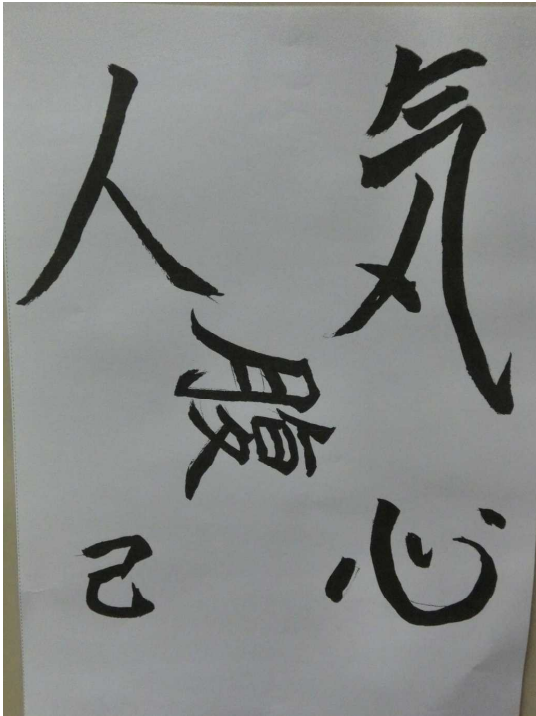 気心
腹
人己